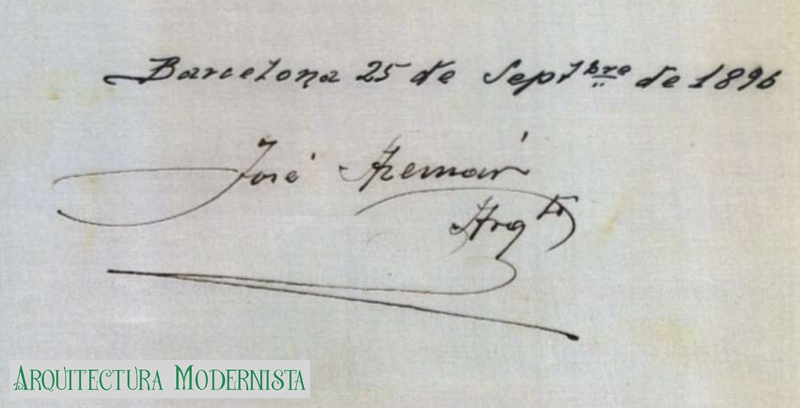 Barcelona 25 de Septbre de 1896
José Azemár
Arqto
ARQUITECTURA MODERNISTA